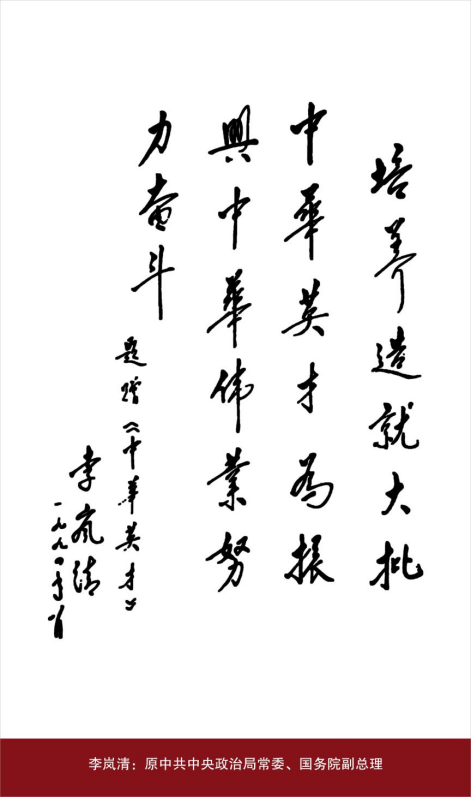 培养造就大批
中華英才為振
興中華伟業努
力奋斗
题赠《中华英才》
李岚清
一九九〇年
李岚清：原中共中央政治局常委、国务院副总理